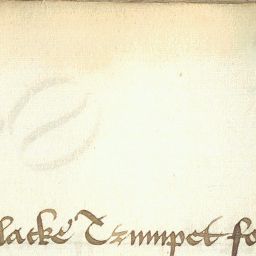 lacke Trumpet fo